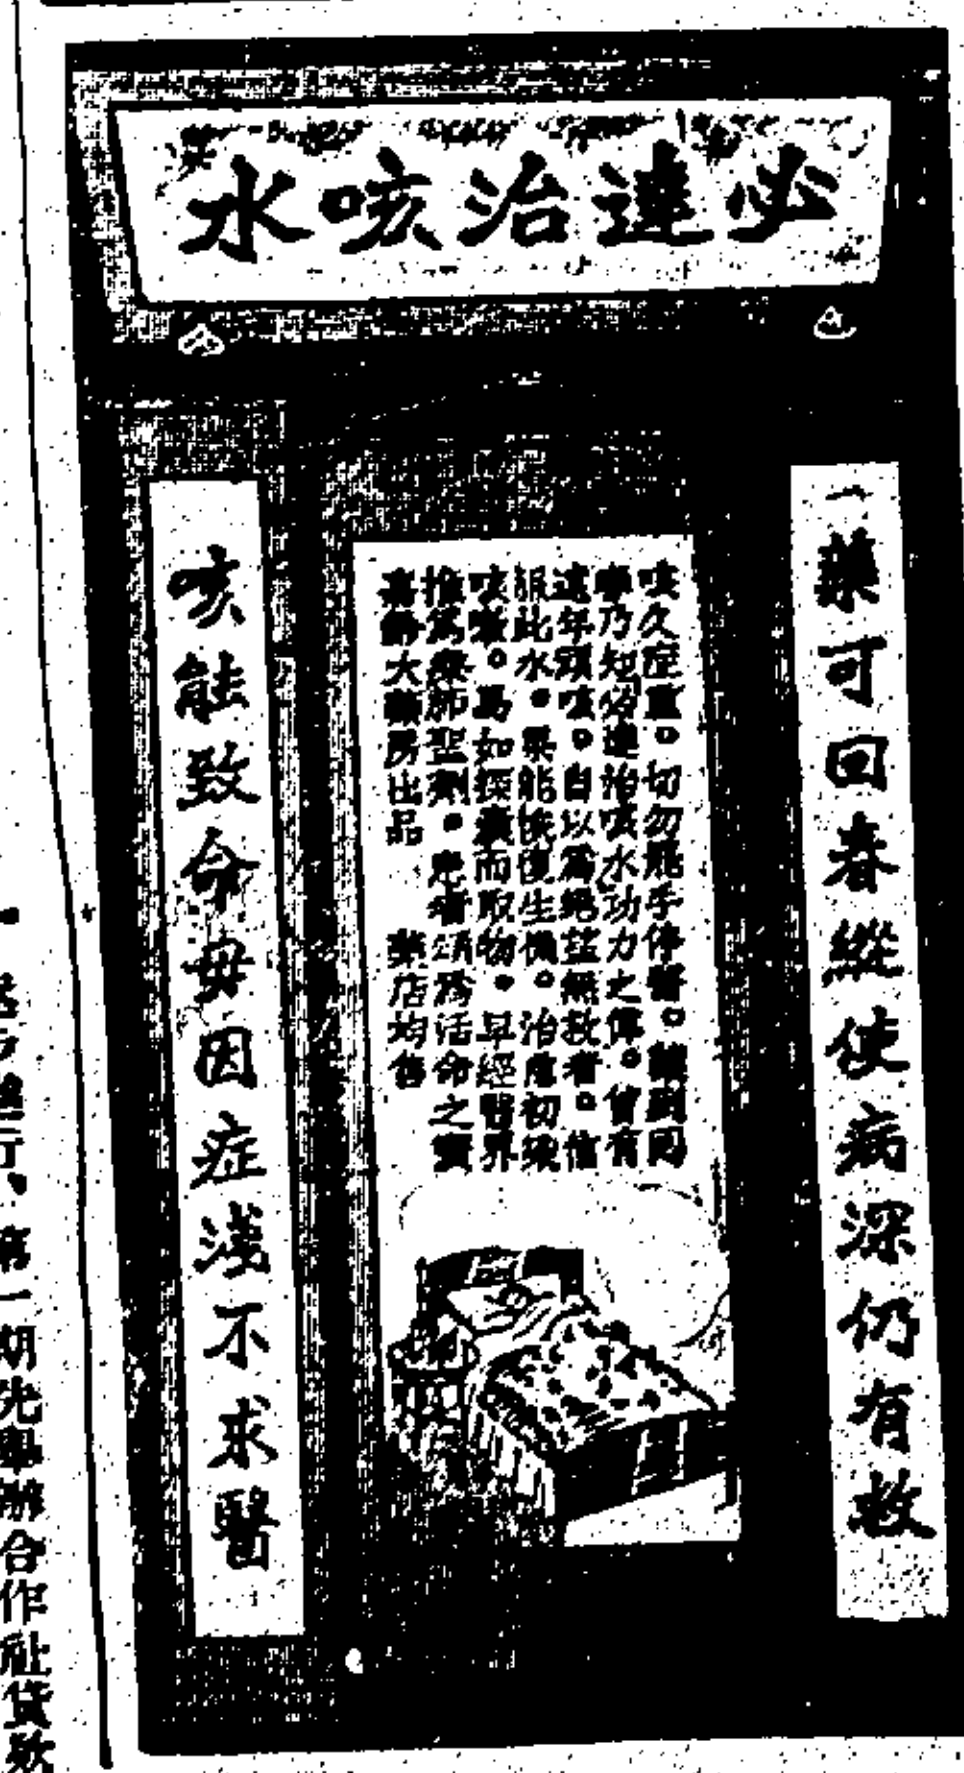 必達治咳水
一藥可回春縱使病深仍有救
咳久症重。切勿脫手停醫。
乃知必達治咳水功力之偉。曾有
遠年頑咳。自以爲絕望無救者。
服此水。果能恢復生機。治愈初
咳嗽。如探囊而取物。早經醫界
推爲療肺聖劑。患者頌爲活命之寶
大藥房出品 藥店均售
咳能致命毋因症淺不求醫
第一期先舉辦合作社貸款